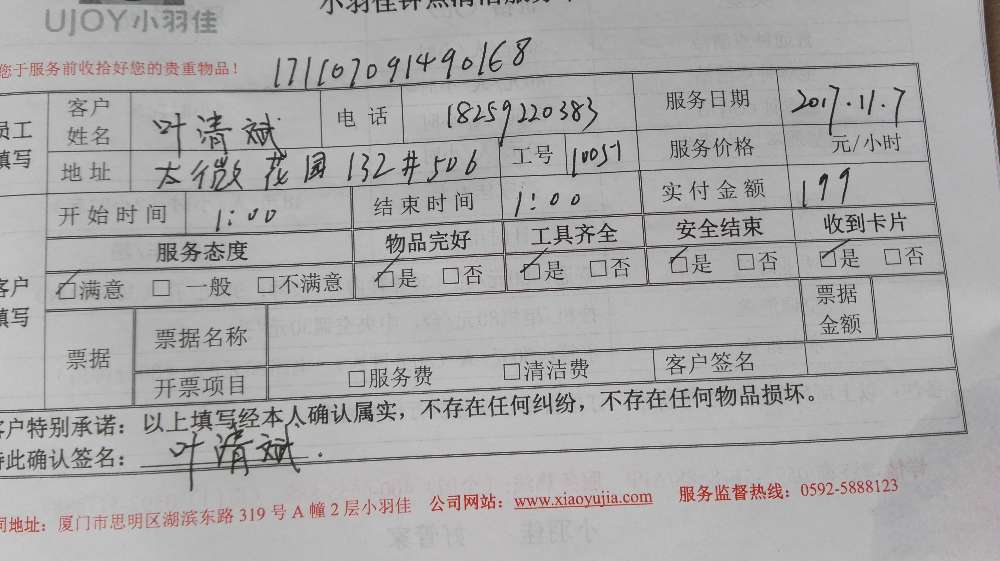 UJOY小羽佳
小羽佳钟点清洁服务
您于服务前收拾好您的贵重物品！ 171107091490168
员工填写 客户姓名 叶清斌 电话 18259220383 服务日期 2017.11.7
地址 太微花园132#506 工号 10051 服务价格 元/小时
开始时间 1:00 结束时间 1:00 实付金额 199
服务态度 物品完好 工具齐全 安全结束 收到卡片
客户填写 ☑满意 □一般 □不满意 ☑是 □否 ☑是 □否 ☑是 □否 ☑是 □否
票据 票据名称 票据金额
开票项目 □服务费 □清洁费 客户签名
客户特别承诺：以上填写经本人确认属实，不存在任何纠纷，不存在任何物品损坏。
特此确认签名：叶清斌.
司地址：厦门市思明区湖滨东路 319 号 A 幢 2 层小羽佳 公司网站：www.xiaoyujia.com 服务监督热线：0592-5888123